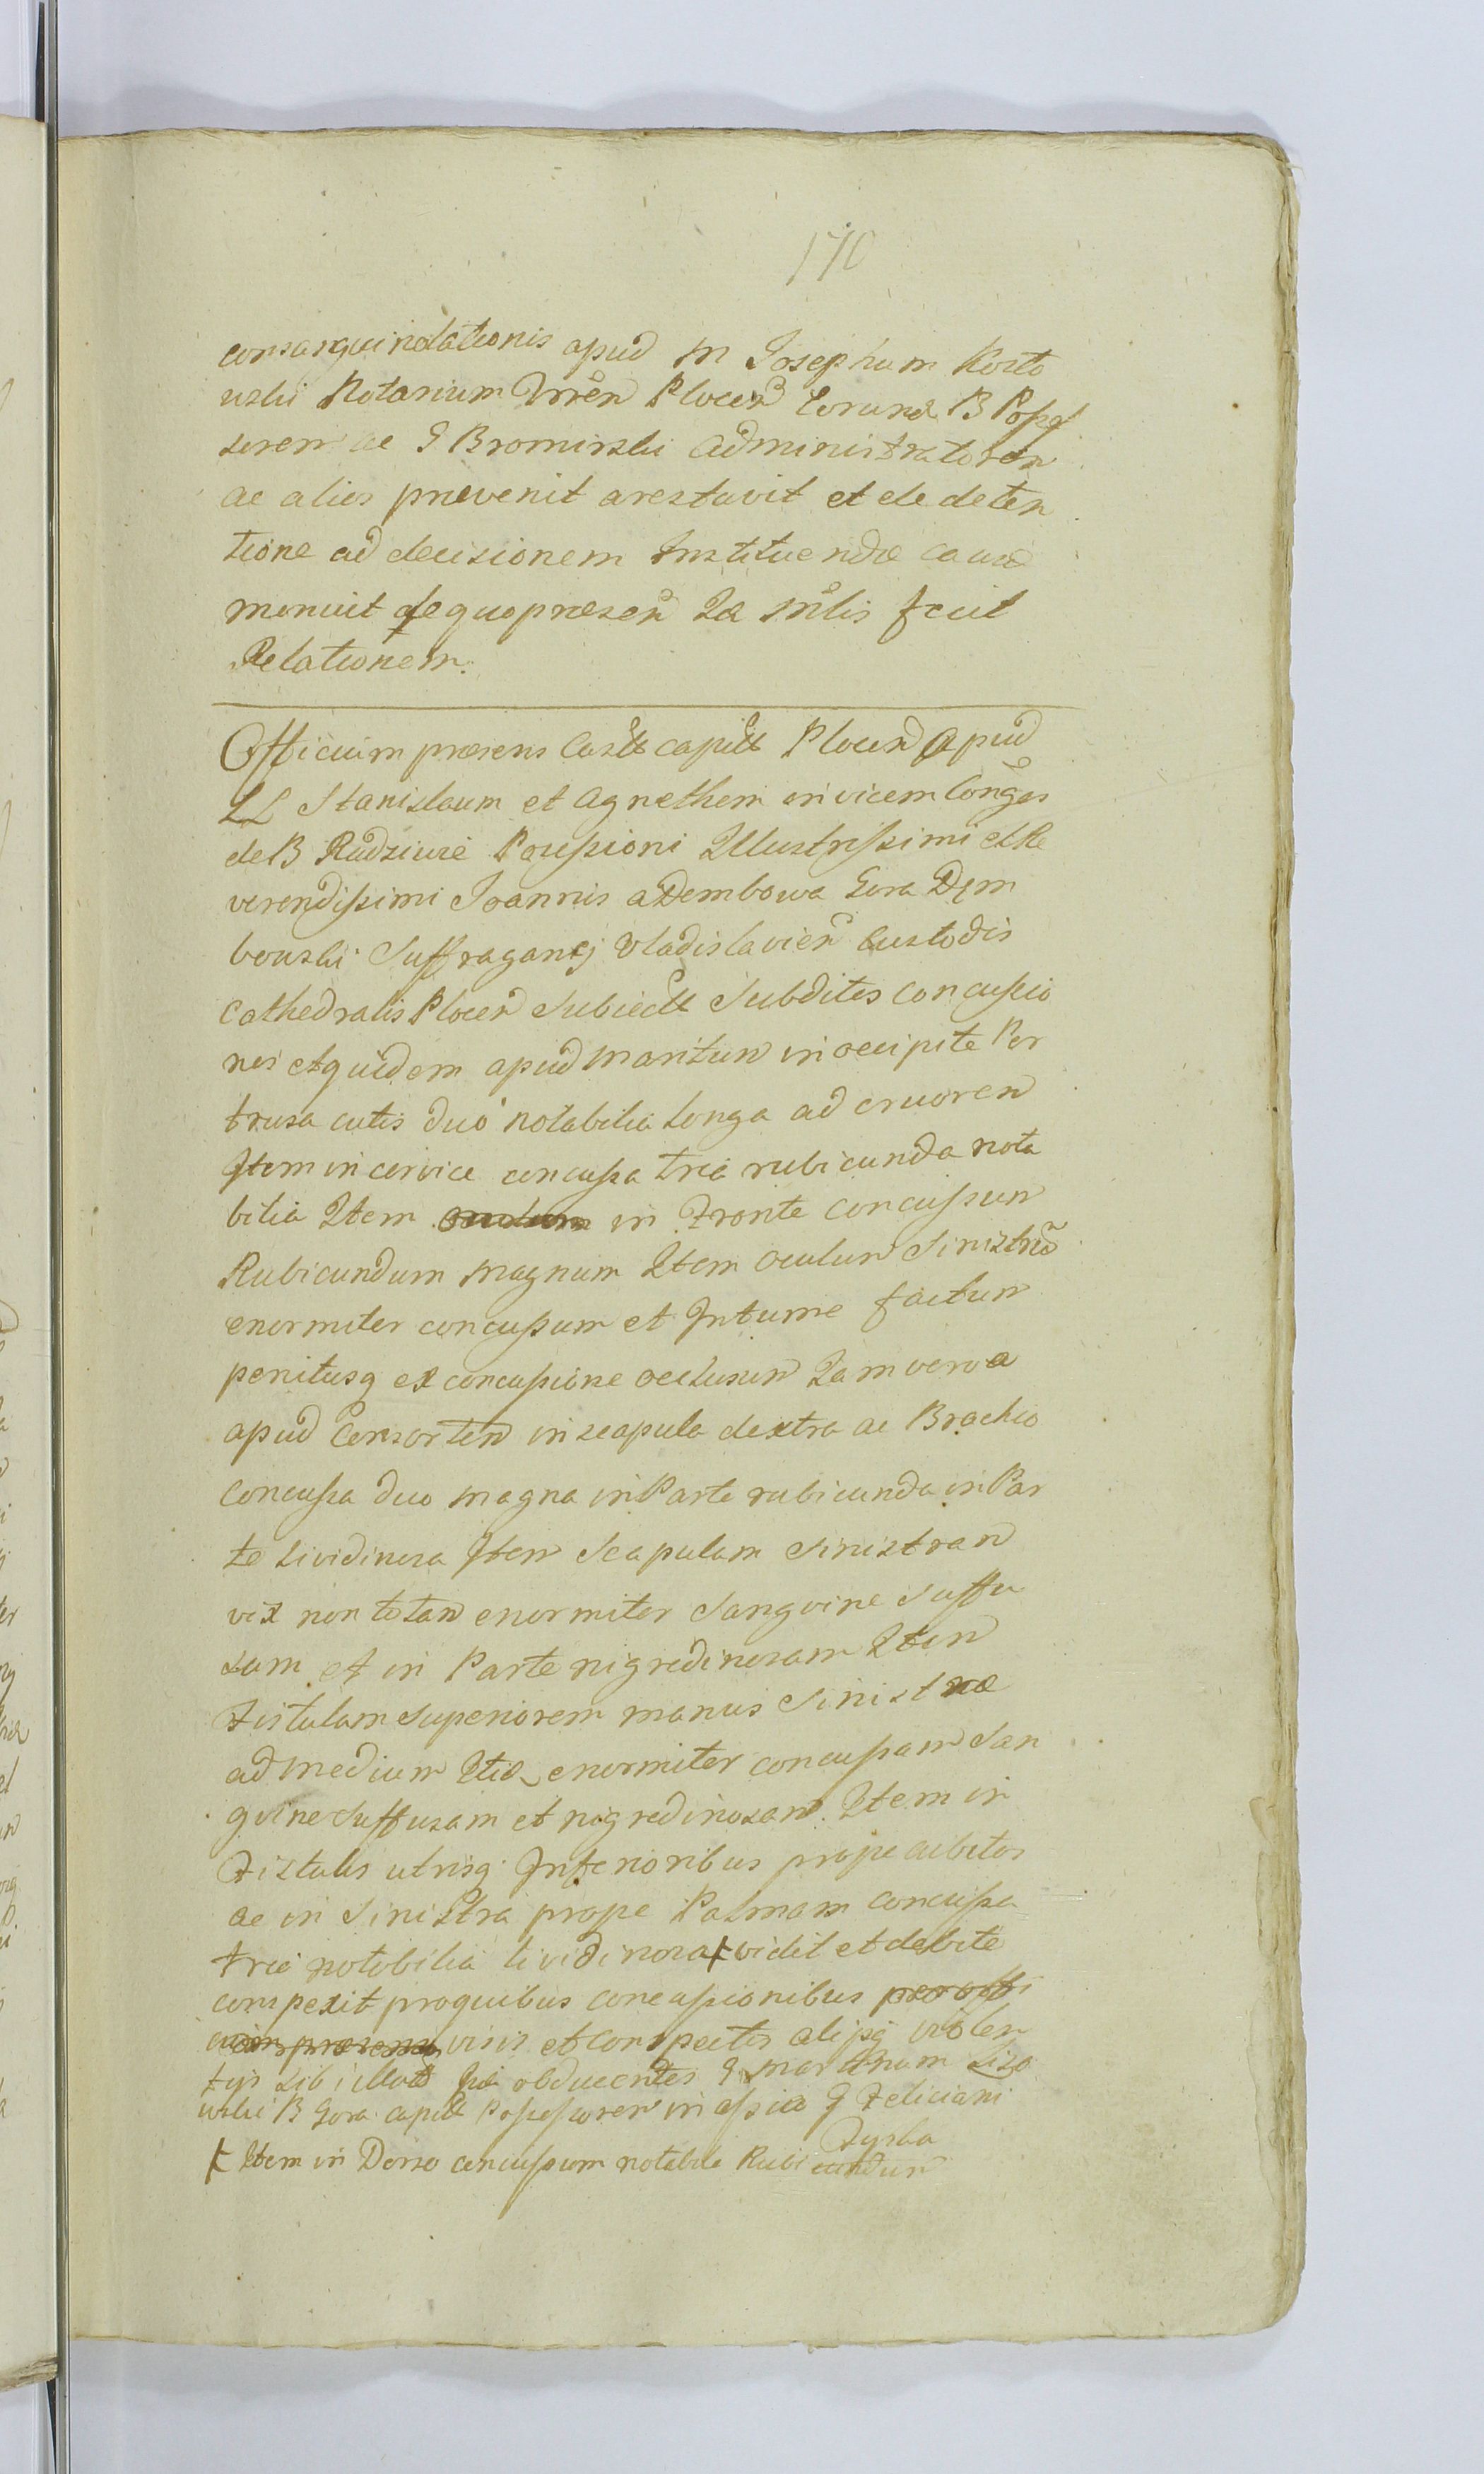 170
consanguinolationis apud M Josephum Kosto
wski Notarium Trren Plocen B Posses
sorem ac G Bromirski Administratorem
ac alios prævenit arestavit et de deten
tione ad decisionem Instituendæ causæ
monuit de quo præsen Ia Mlis fecit
Relationem.
Officium præsens Castr capitt Plocen apud
LL Stanislaum et Agnethem invicem Conges
de B Radziwie Possessioni Illustrissimi et Re
verendissimi Joannis a Dembowa Gora Dem
bowski Suffraganej Vladislavien Custodis
Cathedralis Plocen Subiectt Subditos concussio
nes et quidem apud Maritum in occipite Per
trusa cutis duo notabilia longa ad cruorem
Item in cervice concussa tria rubicunda nota
bilia Item in Fronte concussum
Rubicundum magnum Item oculum Sinistrũ
enormiter concussum et Intume factum
penitusq ex concussione occlusum Iam vero a
apud Consortem in scapula dextra ac Brachio
concussa duo magna in Parte rubicunda in Par
te lividinosa Item Scapulam Sinistram
vix non totam enormiter Sangvine Suffu
sam et in Parte nigredinosam Item
Fistulam Superiorem manus Sinistræ
ad medium enormiter concussam San
gvine Suffusam et nigredinosam. Item in
Fistulis utrisq Inferioribus prope cubitos
ac in Sinistra prope Palmam concussa
tria notabilia lividinosa ⨍ vidit et debite
conspexit pro quibus concussionibus per offi
cium præsens visis et conspectis alijsq violen
tijs sibi illatt obducentes G Martinum Liso
wski B Gora capitt Possessorem in assia G Feliciani
Zyska
⨍ Item in Dorso concussum notabile Rubicundum